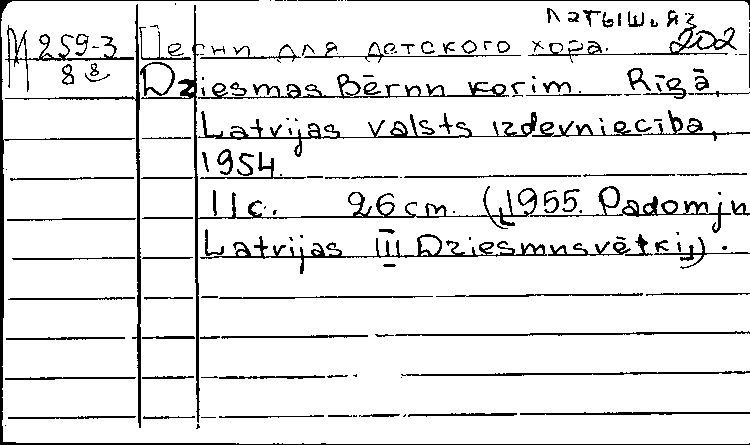 латыш. яз
М 259-3 Песни для детского хора. 202
8 8
Dziesmas Bērnu korim. Rīgā,
Latvijas valsts izdevniecība,
1954.
11c. 26 cm. („1955. Padomju
Latvijas III Dziesmusvētki„).